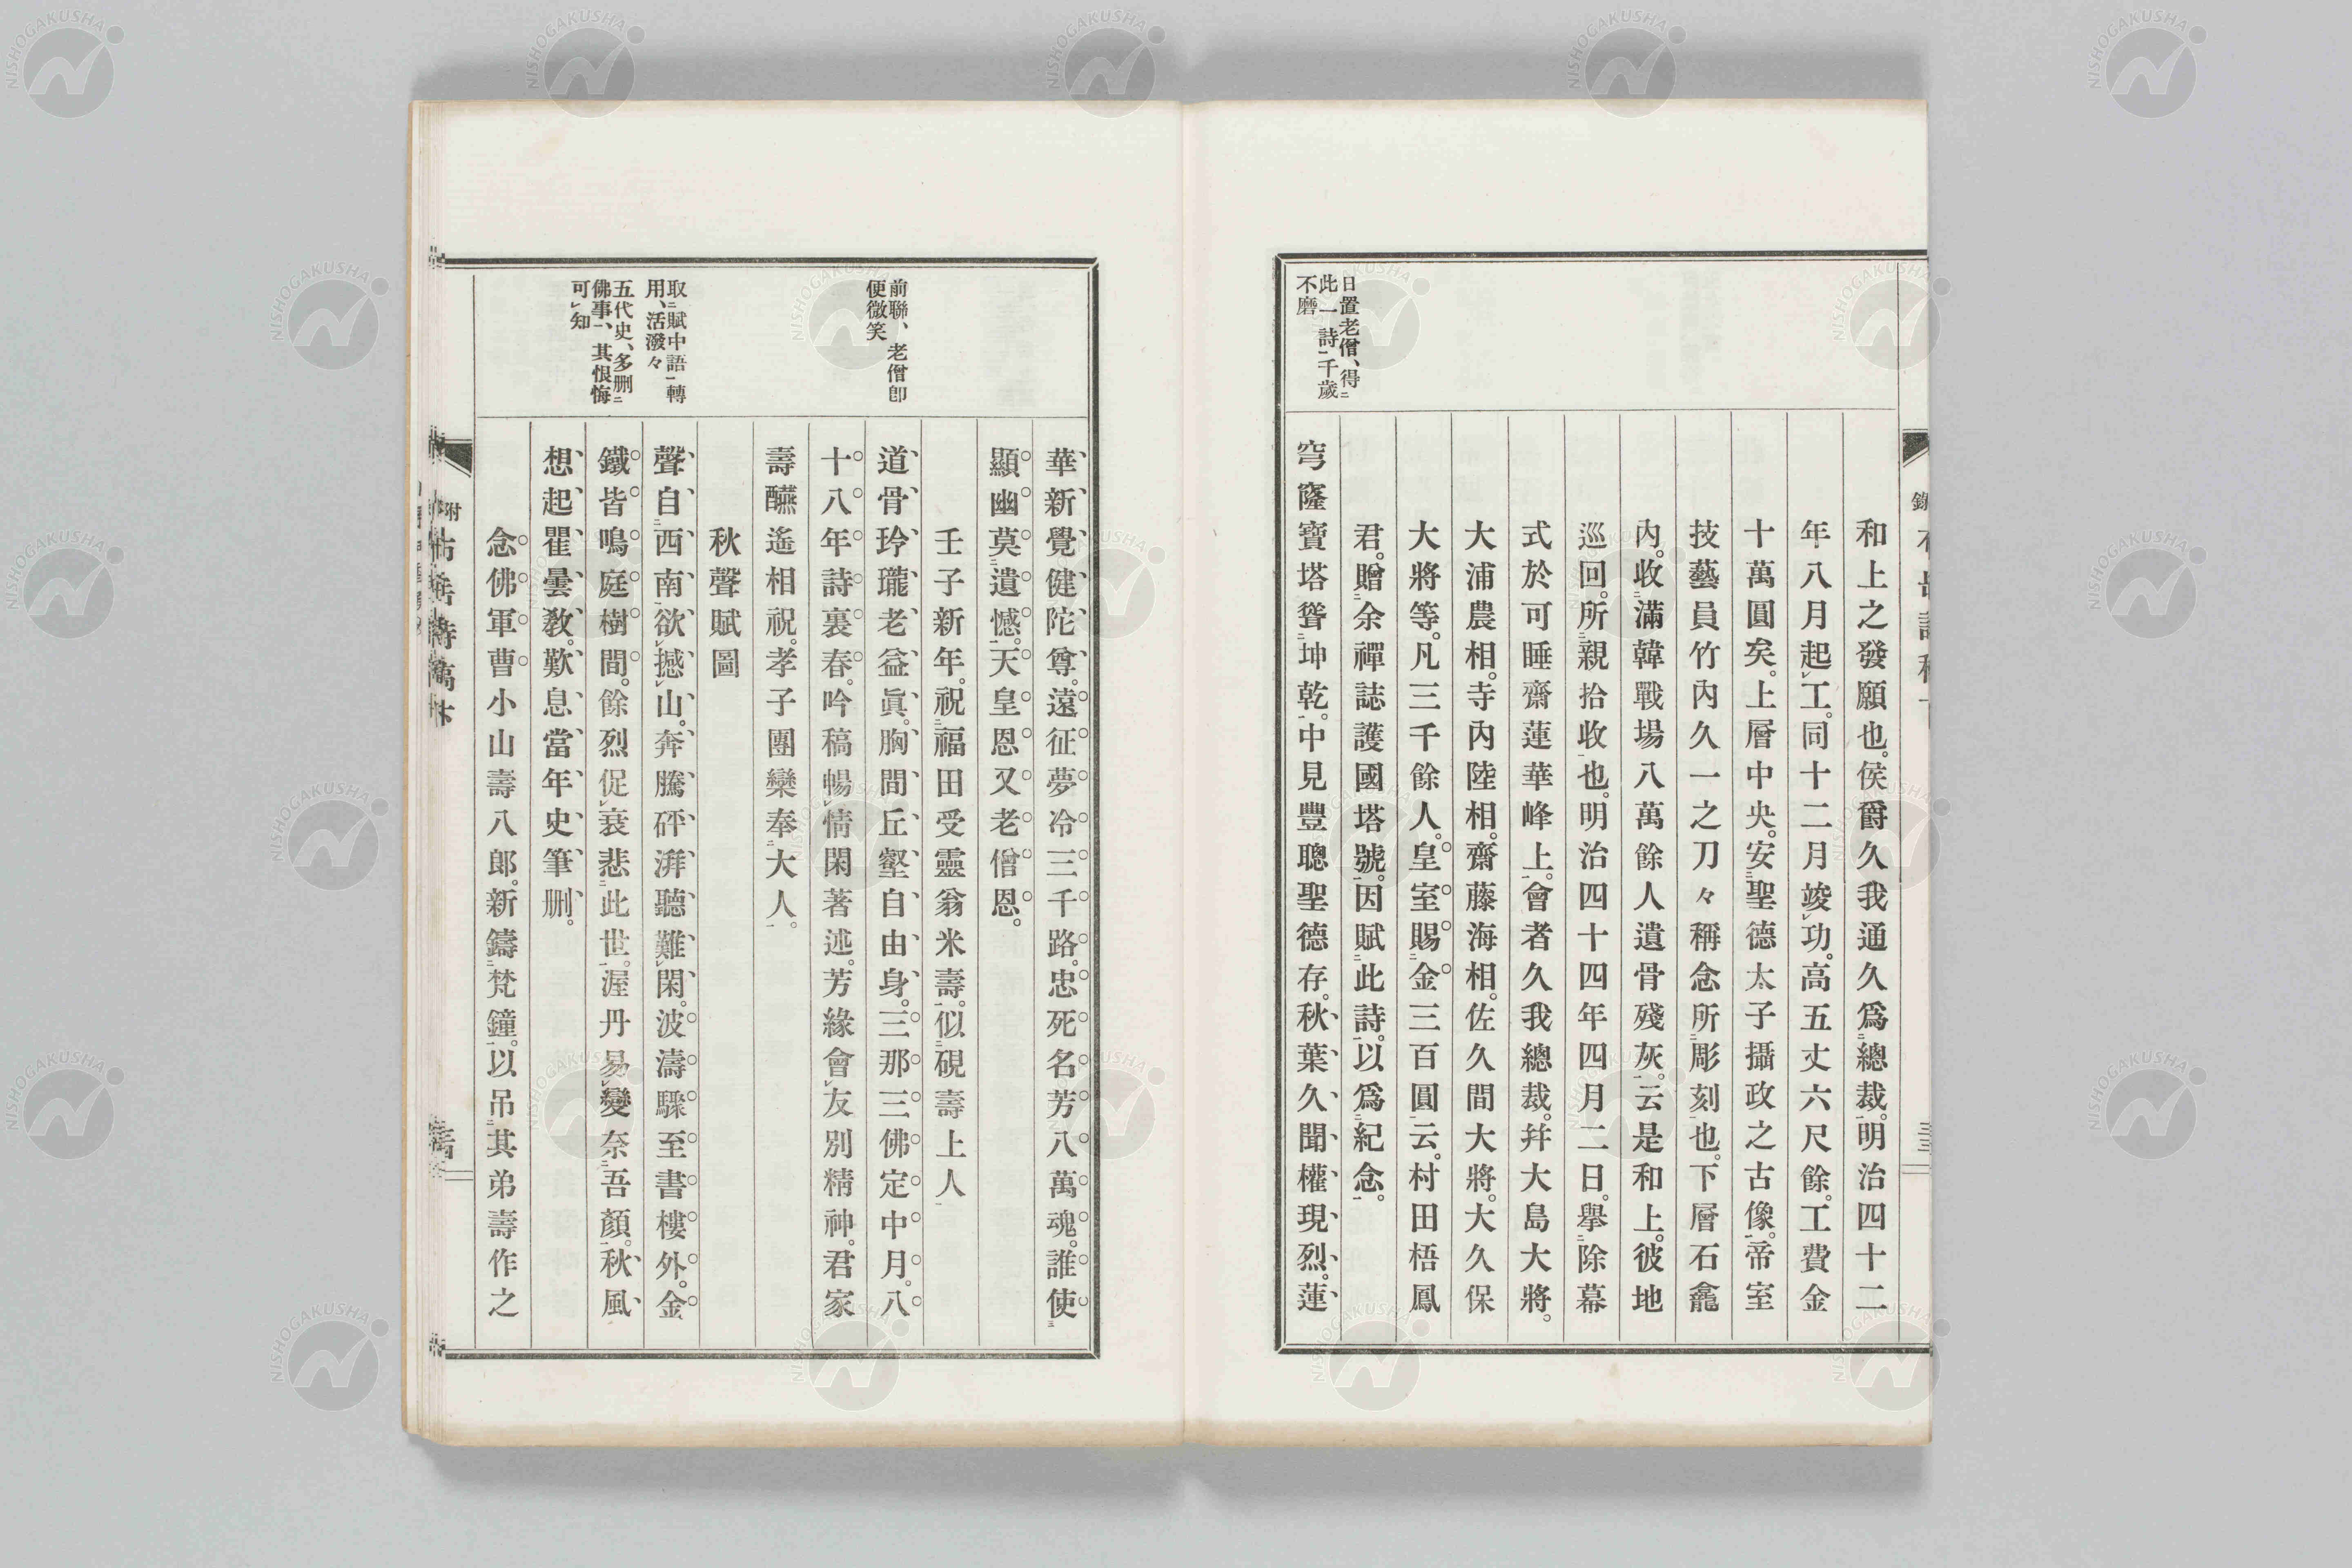 日置老僧、得
此一詩千歲
不磨
和上之發願也。侯爵久我通久爲總裁。明治四十二
年八月起工。同十二月竣功。高五丈六尺餘。工費金
十萬圓矣。上層中央。安聖德太子攝政之古像。帝室
技藝員竹內久一之刀々稱念所彫刻也。下層石龕
內。收滿韓戰場八萬餘人遺骨殘灰。云是和上。彼地
巡回。所親拾收也。明治四十四年四月二日。擧除幕
式於可睡齋蓮華峰上。會者久我總裁。幷大島大將。
大浦農相。寺內陸相。齋藤海相。佐久間大將。大久保
大將等。凡三千餘人。皇室。賜金三百圓云。村田梧鳳
君。贈余禪誌護國塔號。因賦此詩。以爲紀念。
穹窿寶塔聳坤乾。中見豐聰聖德存。秋葉久聞權現烈。蓮
前聯、老僧卽
便微笑
取賦中語轉
用、活潑々
五代史、多刪
佛事、其恨悔
可知
華新覺健陀尊。遠征夢冷三千路。忠死名芳八萬魂。誰使
顯幽莫遺憾。天皇恩又老僧恩。
壬子新年。祝福田受靈翁米壽。似硯壽上人
道骨玲瓏老益眞。胸間丘壑自由身。三那三佛定中月。八
十八年詩裏春。吟稿暢情閑著述。芳緣會友別精神。君家
壽醼遙相祝。孝子團欒奉大人。
秋聲賦圖
聲自西南欲撼山。奔騰砰湃聽難閑。波濤驟至書樓外。金
鐵皆鳴庭樹間。餘烈促衰悲此世。渥丹易變奈吾顏。秋風
想起瞿曇敎。歎息當年史筆刪。
念佛軍曹小山壽八郞。新鑄梵鐘。以吊其弟壽作之
NISHOGAKUSHA